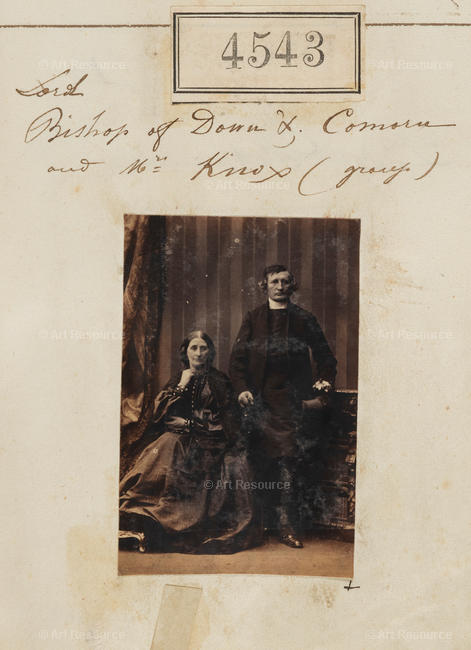 4543
Lord
Bishop of Down &. Comoru
and Mrs. Knox (group)
© Art Resource
© Art Resource
© Art Resource
© Art Resource
© Art Resource
© Art Resource
© Art Resource
© Art Resource
© Art Resource
© Art Resource